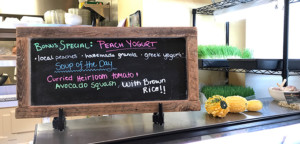 Bonus Special: Peach Yogurt
• local peaches • homemade granola • greek yogurt
Soup of the Day
Curried Heirloom tomato +
Avocado Squash, With Brown
Rice!!